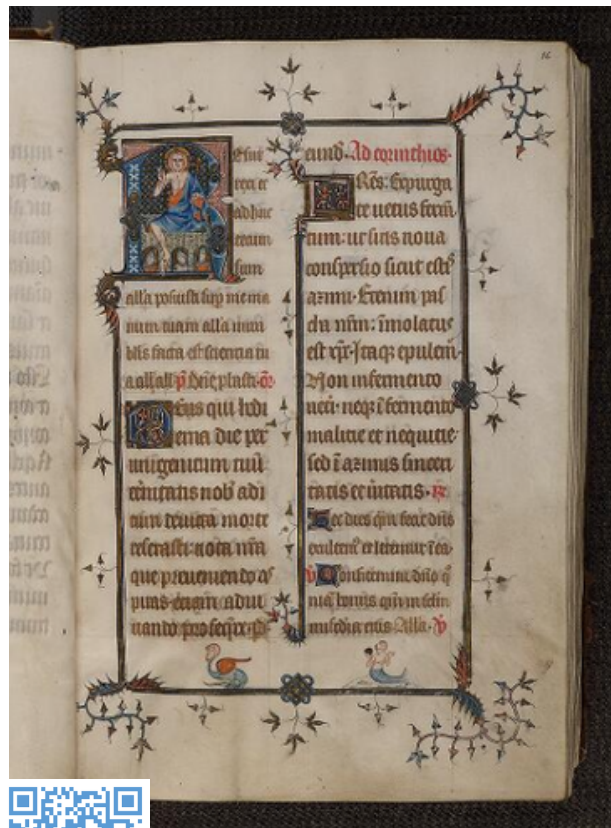 16
Resur
rexi et
adhuc
tecum
sum
alla posuisti sup me ma
num tuam alla mira
blis facta est sciencia tu
a all all p̄. Dñe p̄basti. or̄
Deus qui hodi
erna die per
unigenitum tuū
et̄nitatis nob̄ adi
tum deuicta morte
reserasti: uota nr̄a
que preueniendo as
piras: etiam adiu
uando prosequere. p.
eund. Ad corinthios.
FRēs: Expurga
te uetus ferm̄
tum: ut sitis noua
conspersio sicut estis
azimi. Etenim pas
cha nr̄m: īmolatus
est xp̄c. Itaq; epulem̄.
Non in fermento
ueti: neq; ī fermento
malicie et nequicie:
sed ī azimis sinceri
tatis et ūitatis. R̄.
Hec dies quā fecit dn̄s
exultem̄ et letemur ī ea.
V Confitemini dn̄o q̄
niā bonus: qm̄ in sclm̄
mīsc̄dia eius Alla. V